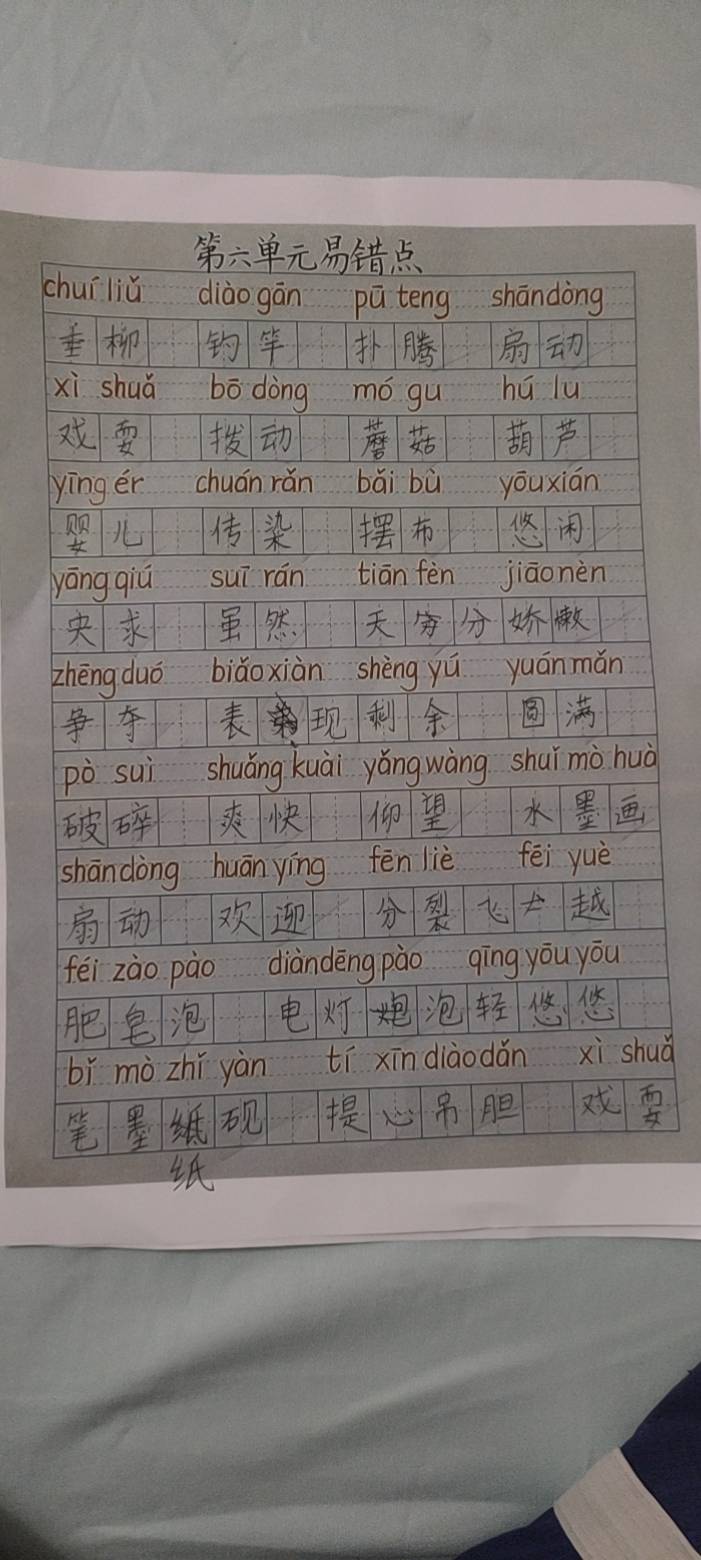 第六单元易错点
chuí liǔ diào gān pū teng shān dòng
垂柳 钓竿 扑腾 扇动
xì shuǎ bō dòng mó gu hú lu
戏耍 拨动 蘑菇 葫芦
yīng ér chuán rǎn bǎi bù yōu xián
婴儿 传染 摆布 悠闲
yāng qiú suī rán tiān fèn jiāo nèn
央求 虽然 天分 娇嫩
zhēng duó biǎo xiàn shèng yú yuán mǎn
争夺 表现 剩余 圆满
pò suì shuǎng kuài yǎng wàng shuǐ mò huà
破碎 爽快 仰望 水墨画
shān dòng huān yíng fēn liè fēi yuè
扇动 欢迎 分裂 飞越
féi zào pào diàn dēng pào qīng yōu yōu
肥皂泡 电灯泡 轻悠悠
bǐ mò zhǐ yàn tí xīn diào dǎn xì shuǎ
笔墨纸砚 提心吊胆 戏耍
纸